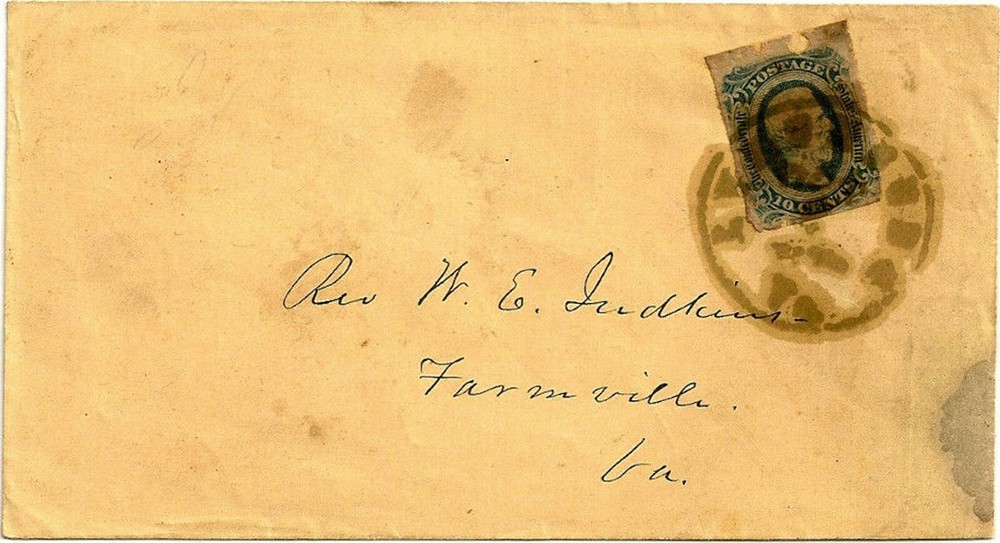 POSTAGE
Confederate States America
10 CENTS
Rev W. E. Judkins
Farmville.
Va.